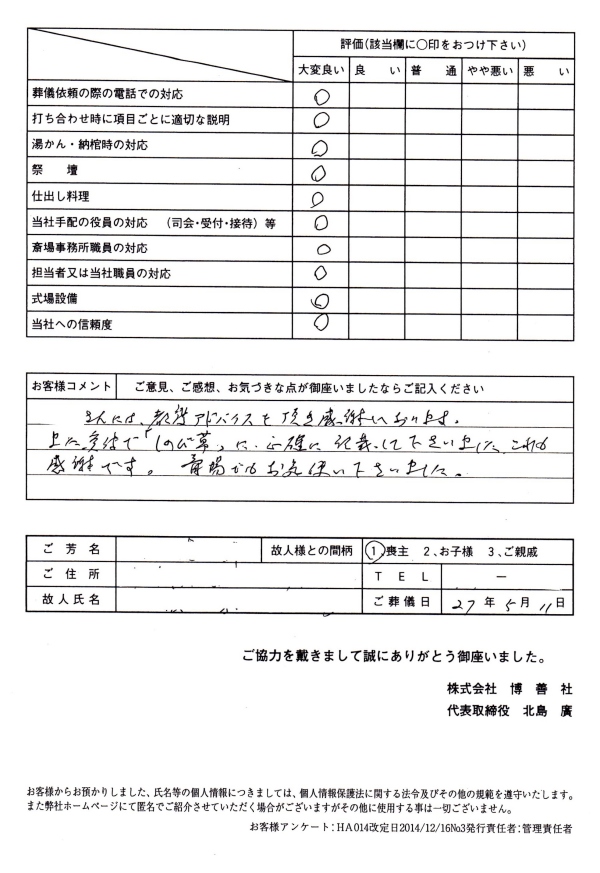 評価(該当欄に〇印をおつけ下さい)
大変良い 良い 普通 やや悪い 悪い
葬儀依頼の際の電話での対応 〇
打ち合わせ時に項目ごとに適切な説明 〇
湯かん・納棺時の対応 〇
祭壇 〇
仕出し料理 〇
当社手配の役員の対応 (司会・受付・接待)等 〇
斎場事務所職員の対応 〇
担当者又は当社職員の対応 〇
式場設備 〇
当社への信頼度 〇
お客様コメント ご意見、ご感想、お気づきな点が御座いましたならご記入ください
さんには、アドバイスを頂き感謝しております。
また受付で「しのび草」に、正確に記載して下さいました。これも
感謝です。斎場でもお気使い下さいました。
ご芳名 故人様との間柄 1、喪主 2、お子様 3、ご親戚
ご住所 TEL ー
故人氏名 ご葬儀日 27年5月11日
ご協力を戴きまして誠にありがとう御座いました。
株式会社 博善社
代表取締役 北島 廣
お客様からお預かりしました、氏名等の個人情報につきましては、個人情報保護法に関する法令及びその他の規範を遵守いたします。
また弊社ホームページにて匿名でご紹介させていただく場合がございますがその他に使用する事は一切ございません。
お客様アンケート:HA014改定日2014/12/16No3発行責任者:管理責任者